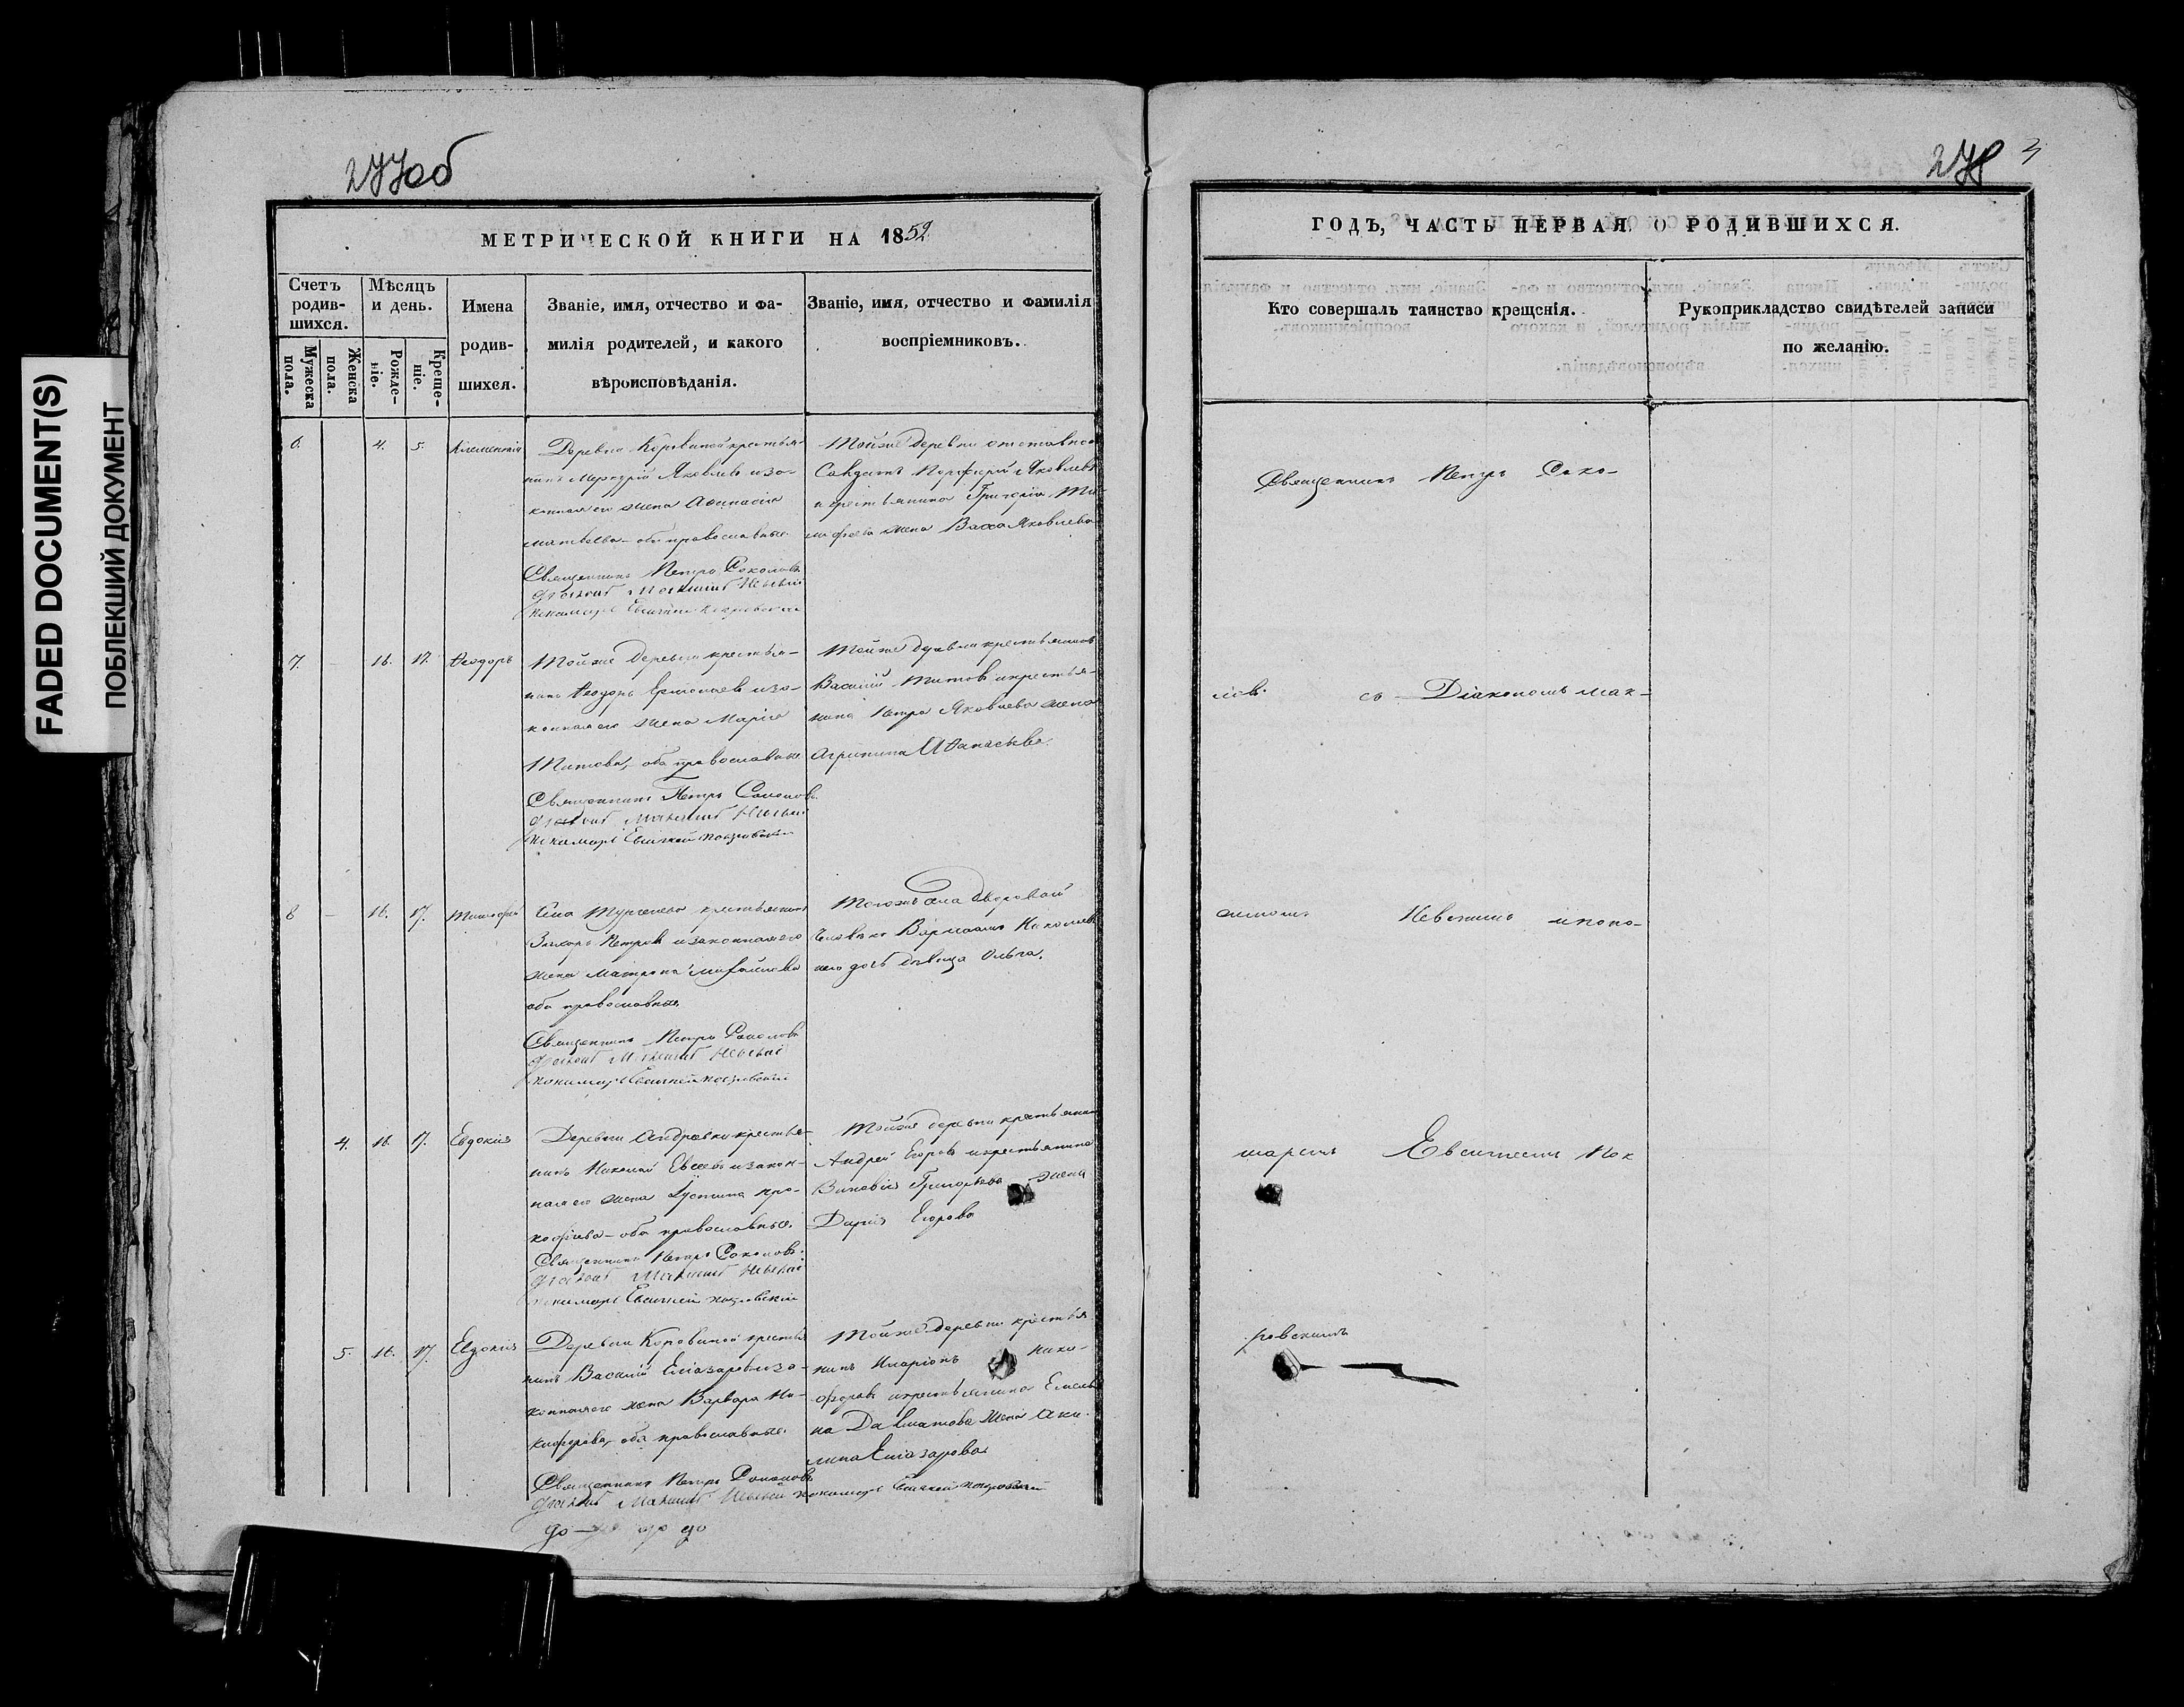 FADED DOCUMENT(S)
ПОБЛЕКШИЙ ДОКУМЕНТ
277об
МЕТРИЧЕСКОЙ КНИГИ НА 1852
Счетъ родив-шихся.
Мѣсяцъ и день.
Имена родив-шихся.
Званіе, имя, отчество и фа-
милія родителей, и какого
вѣроисповѣданія.
Званіе, имя, отчество и фамилія
воспріемниковъ.
Мужеска пола.
Женска пола.
Рожде-ніе.
Креще-ніе.
6. 4. 5.
Деревни Коровиной крестья-
нинъ Меркурій Яковлевъ и за-
конная его жена Афанасія
Матвѣева – оба православные.
Священникъ Петръ Соколовъ
Діаконъ Максимъ
Пономарь Евсигней Покровскій
Тойже деревни отставной
Солдатъ Порфирій Яковлевъ
и крестьянина Григорія Ти-
мофеева жена Васса Яковлева
7. – 16. 17. Ѳеодоръ
Тойже деревни крестья-
нинъ Ѳеодоръ Ермолаевъ и за-
конная его жена Марія
Титова, оба православные
Священникъ Петръ Соколовъ
Діаконъ Максимъ
Пономарь Евсигней Покровскій
Тойже деревни крестьянинъ
Василій Титовъ и крестья-
нина Петра Яковлева жена
Агрипина Аѳанасьева.
8 – 16. 17. Тимофей
Села Тургенева крестьянинъ
Захаръ Петровъ и законная его
жена Матрона Михайлова
оба православные.
Священникъ Петръ Соколовъ
Діаконъ Максимъ
Пономарь Евсигней Покровскій
Тогожъ села дворовой
человѣкъ Варлаамъ Николаевъ
дѣвица Ольга.
4. 16. 17. Евдокія
Деревни крестья-
нинъ Николай Евсеевъ и закон-
ная его жена Іустина Про-
кофьева – оба православные.
Священникъ Петръ Соколовъ
Діаконъ Максимъ
Пономарь Евсигней Покровскій
Тойже деревни крестьянинъ
Андрей Егоровъ и крестьянина
Зиновія Григорьева жена
Дарія Егорова
5. 16. 17. Евдокія
Деревни Коровиной крестья
нинъ Василій Елизаровъ и за-
конная его жена Варвара Ни-
кифорова, оба православные.
Священникъ Петръ Соколовъ
Діаконъ Максимъ Пономарь Евсигней Покровскій
Тойже деревни крестья
нинъ Иларіонъ Ники-
форовъ и крестьянина Емелья
на Давматова жена Аку-
лина Елизарова
278
3
ГОДЪ, ЧАСТЬ ПЕРВАЯ. О РОДИВШИХСЯ.
Кто совершалъ таинство крещенія.
Рукоприкладство свидѣтелей записи
по желанію.
Священникъ Петръ Соко-
ловъ. съ Діакономъ Мак-
симомъ и поно-
маремъ Евсигнеемъ Пок
ровскимъ